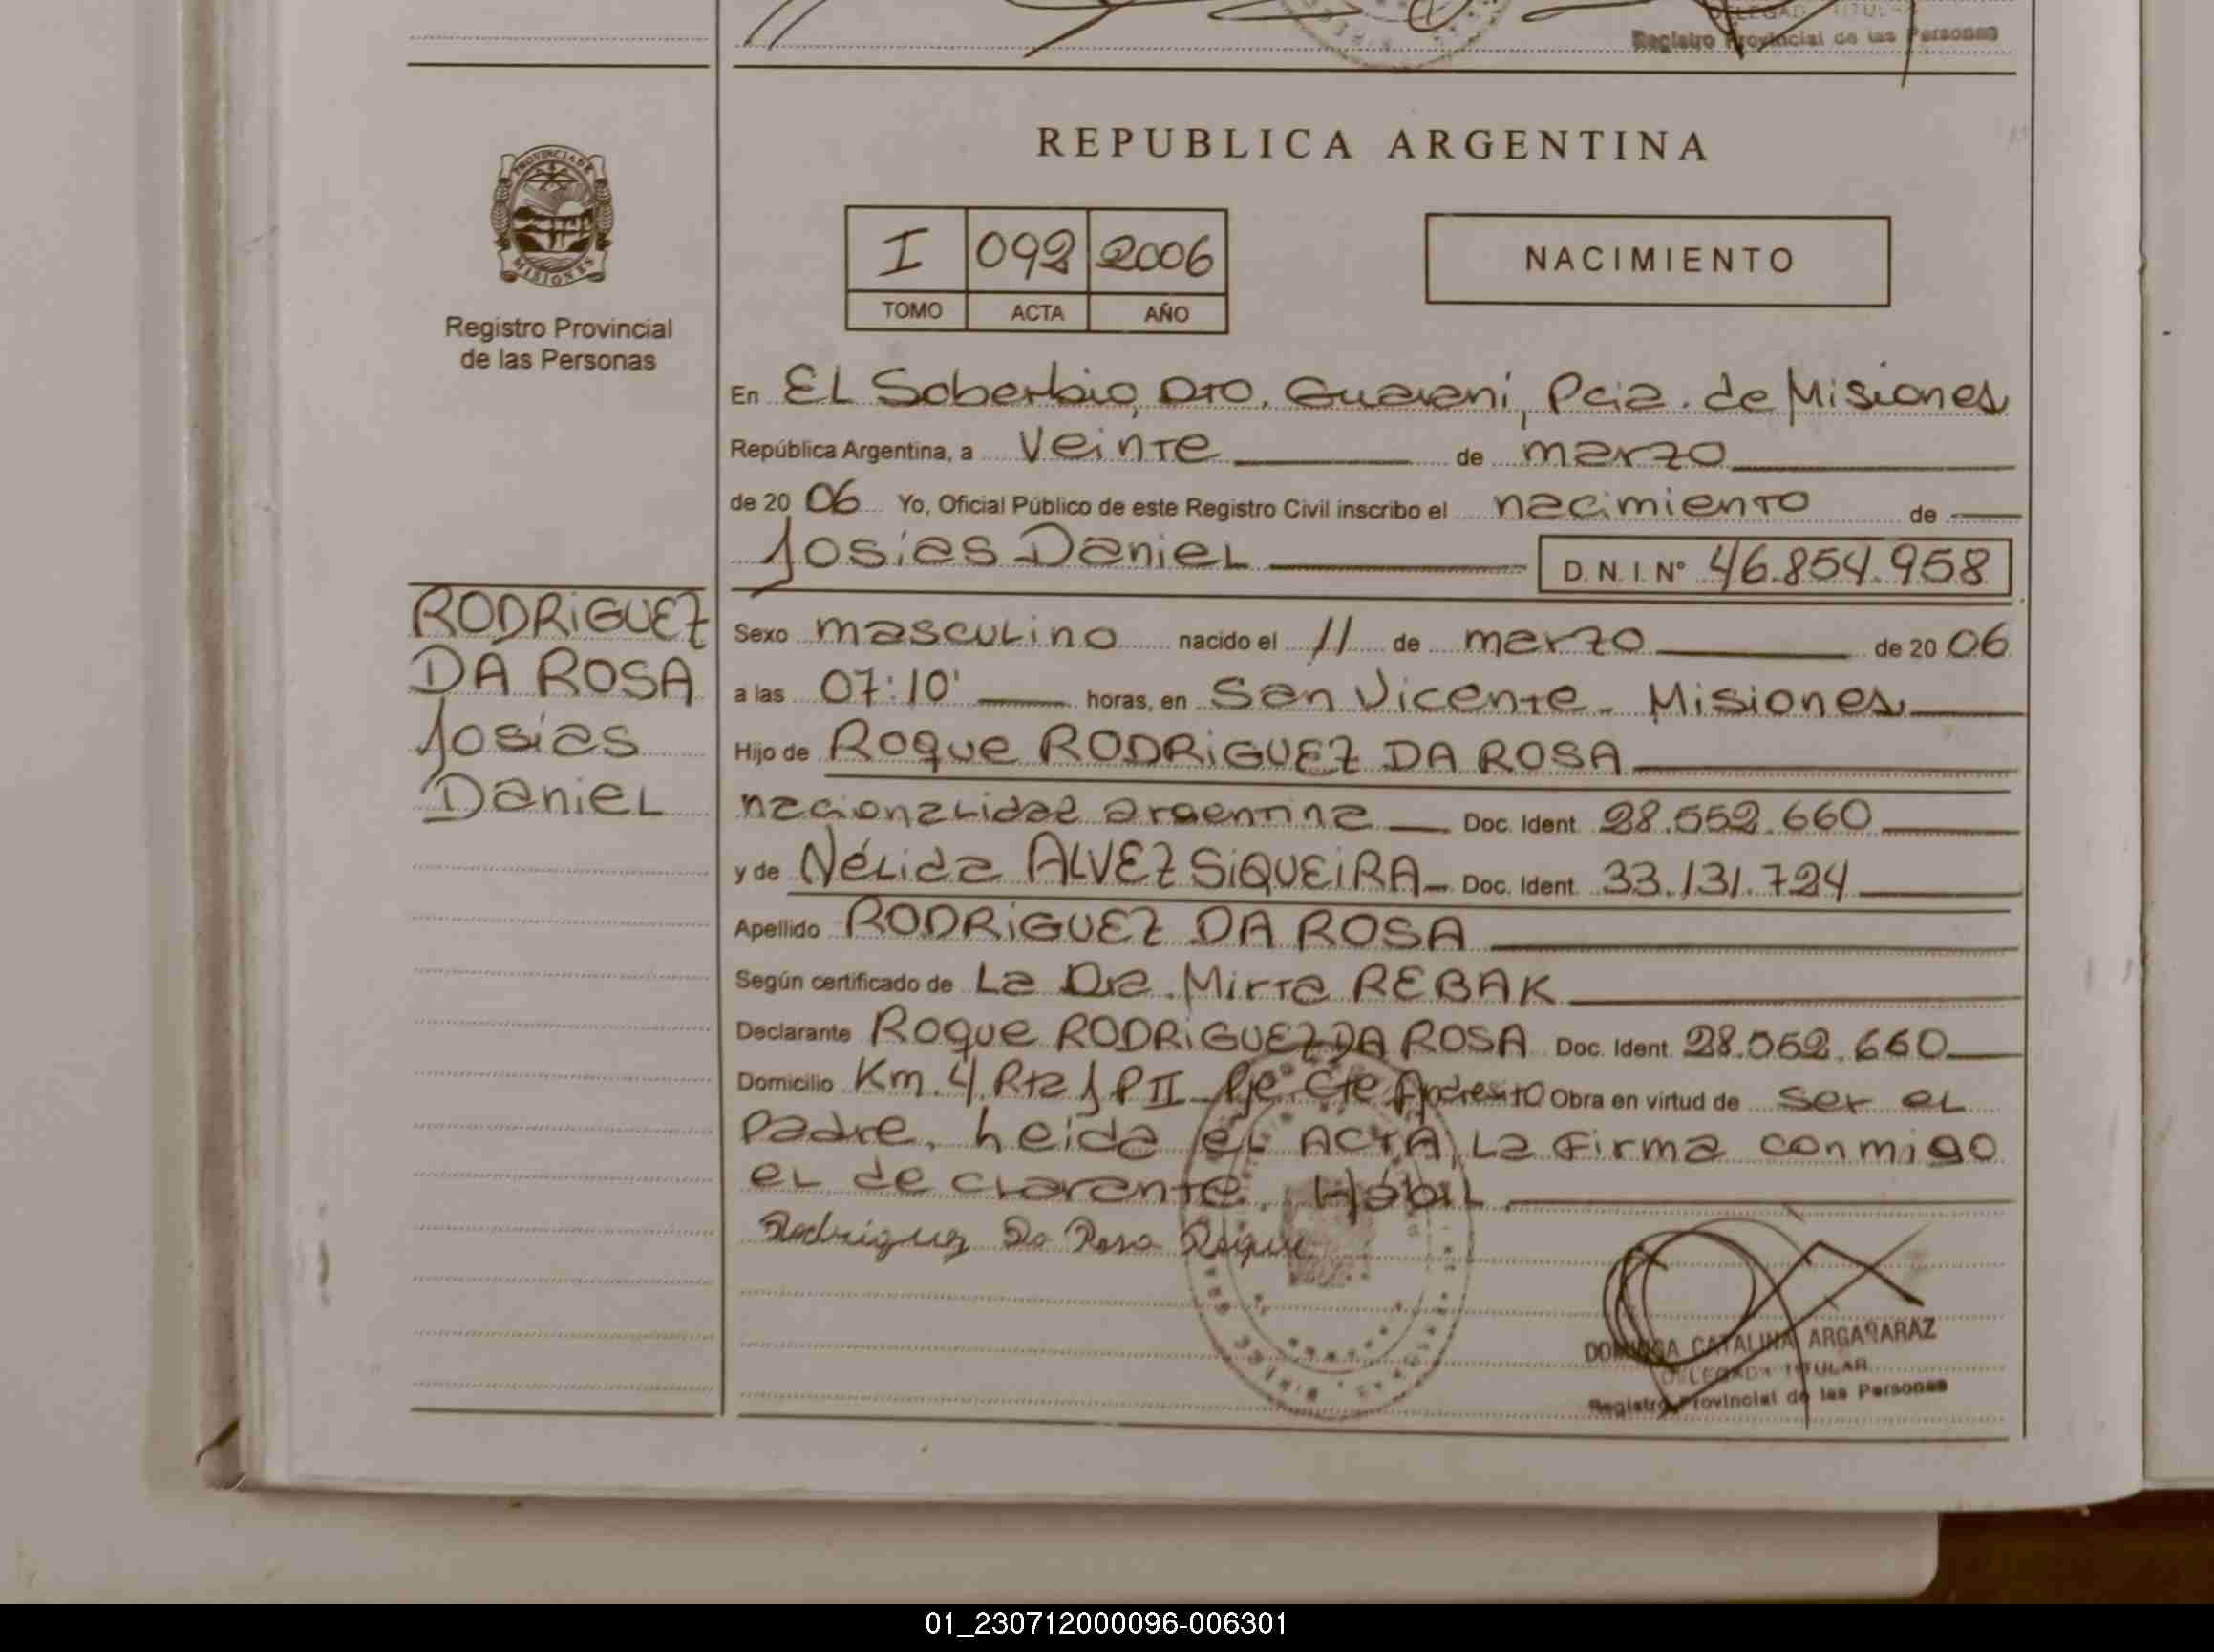 Registro Provincial de las Personas
REPUBLICA ARGENTINA
PROVINCIA DE
MISIONES
Registro Provincial
de las Personas
I 092 2006
TOMO ACTA AÑO
NACIMIENTO
En EL Soberbio, Dto. Guarani, Pcia. de Misiones
República Argentina, a veinte de marzo
de 20 06 Yo, Oficial Público de este Registro Civil inscribo el nacimiento de
Josias Daniel D.N.I. Nº 46.854.958
RODRIGUEZ
DA ROSA
Josias
Daniel
Sexo masculino nacido el 11 de marzo de 20 06
a las 07:10' horas, en San Vicente - Misiones
Hijo de Roque RODRIGUEZ DA ROSA
nacionalidad argentina Doc. Ident. 28.552.660
y de Nélida ALVEZ SIQUEIRA Doc. Ident. 33.131.724
Apellido RODRIGUEZ DA ROSA
Según certificado de La Dra. Mirta REBAK
Declarante Roque RODRIGUEZ DA ROSA Doc. Ident. 28.552.660
Domicilio Km. 4 Rta 1 P II Pje Cte Andresito Obra en virtud de ser el
padre. Leida el ACTA, La firma conmigo
el declarante. Hábil
Rodriguez Da Rosa Roque
DOMINGA CATALINA ARGAÑARAZ
DELEGADA TITULAR
Registro Provincial de las Personas
01_230712000096-006301